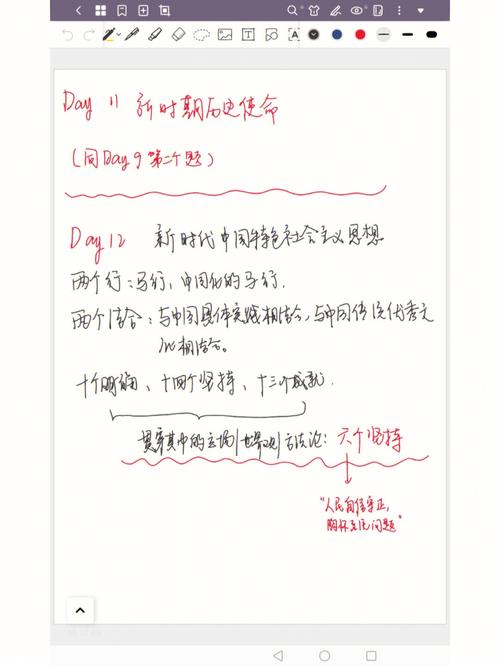 Day 11 新时期历史使命
(同Day 9 第二个题)
Day 12 新时代中国特色社会主义思想
两个行：马行，中国化的马行.
两个结合：与中国具体实践相结合，与中国传统优秀文
化相结合。
十个明确、十四个坚持、十三个成就.
贯穿其中的立场|世界观|方法论：六个坚持
"人民自信守正，
胸怀系统问题"